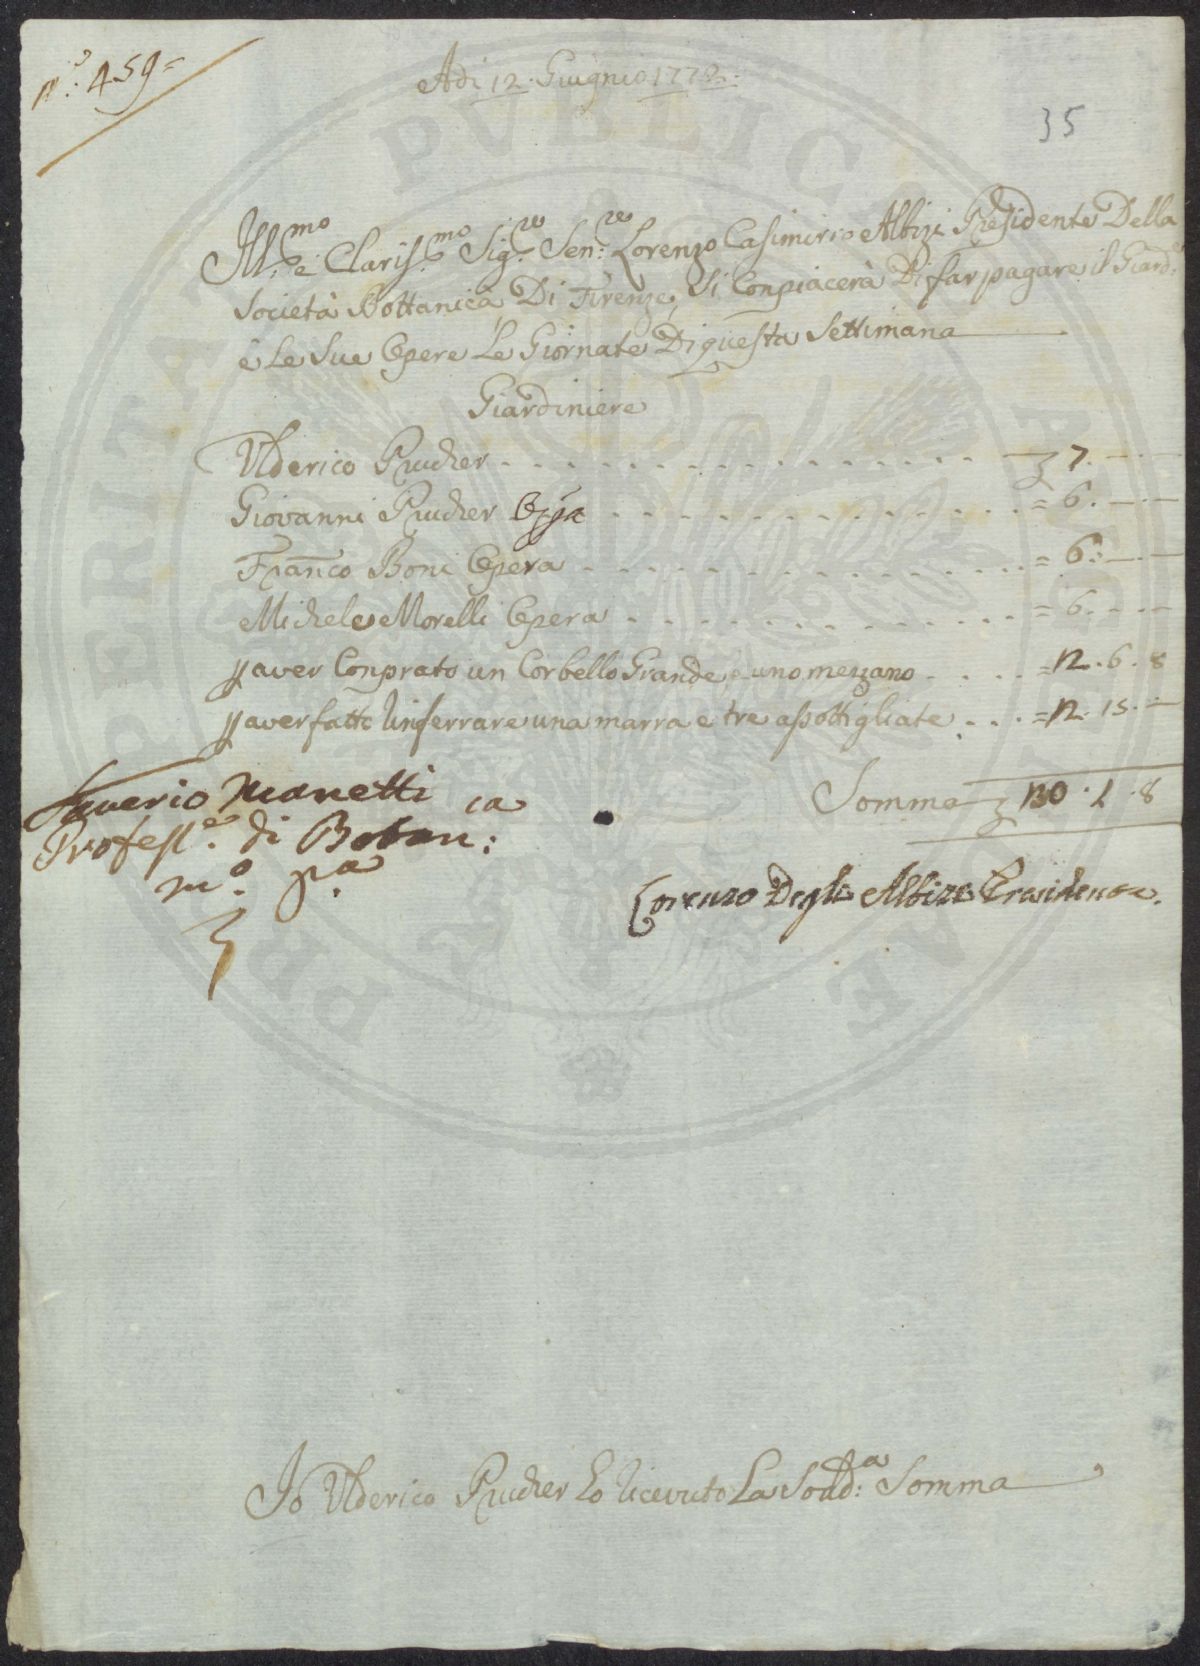 n.º 459=
Adi 12. Giugnio 1772.
35
Ill.mo e Claris.mo Sig.re Sen.re Lorenzo Casimirro Albizi Presidente Della
Società Bottanica Di Firenze, Si Conpiacerà Di far pagare il Giard.e
e Le Sue Opere Le Giornate Di questa Settimana
Giardiniere
Ulderico Prucher 7.
Giovanni Prucher = 6.
Franco Boni Opera = 6.
Michele Morelli Opera = 6.
aver Conprato un Corbello Grande e uno mezzano = 2.6.8
aver fatto Rinferrare una marra e tre asottigliate = 2.15.
Somma 30.1.8
Saverio Manetti
Profess.e di Botan:ca
m.º p.a
Lorenzo Degli Albizi Presidente.
PRO PUBLICA PERITATE
Io Ulderico Prucher ho Ricevuto La Sodd.a Somma